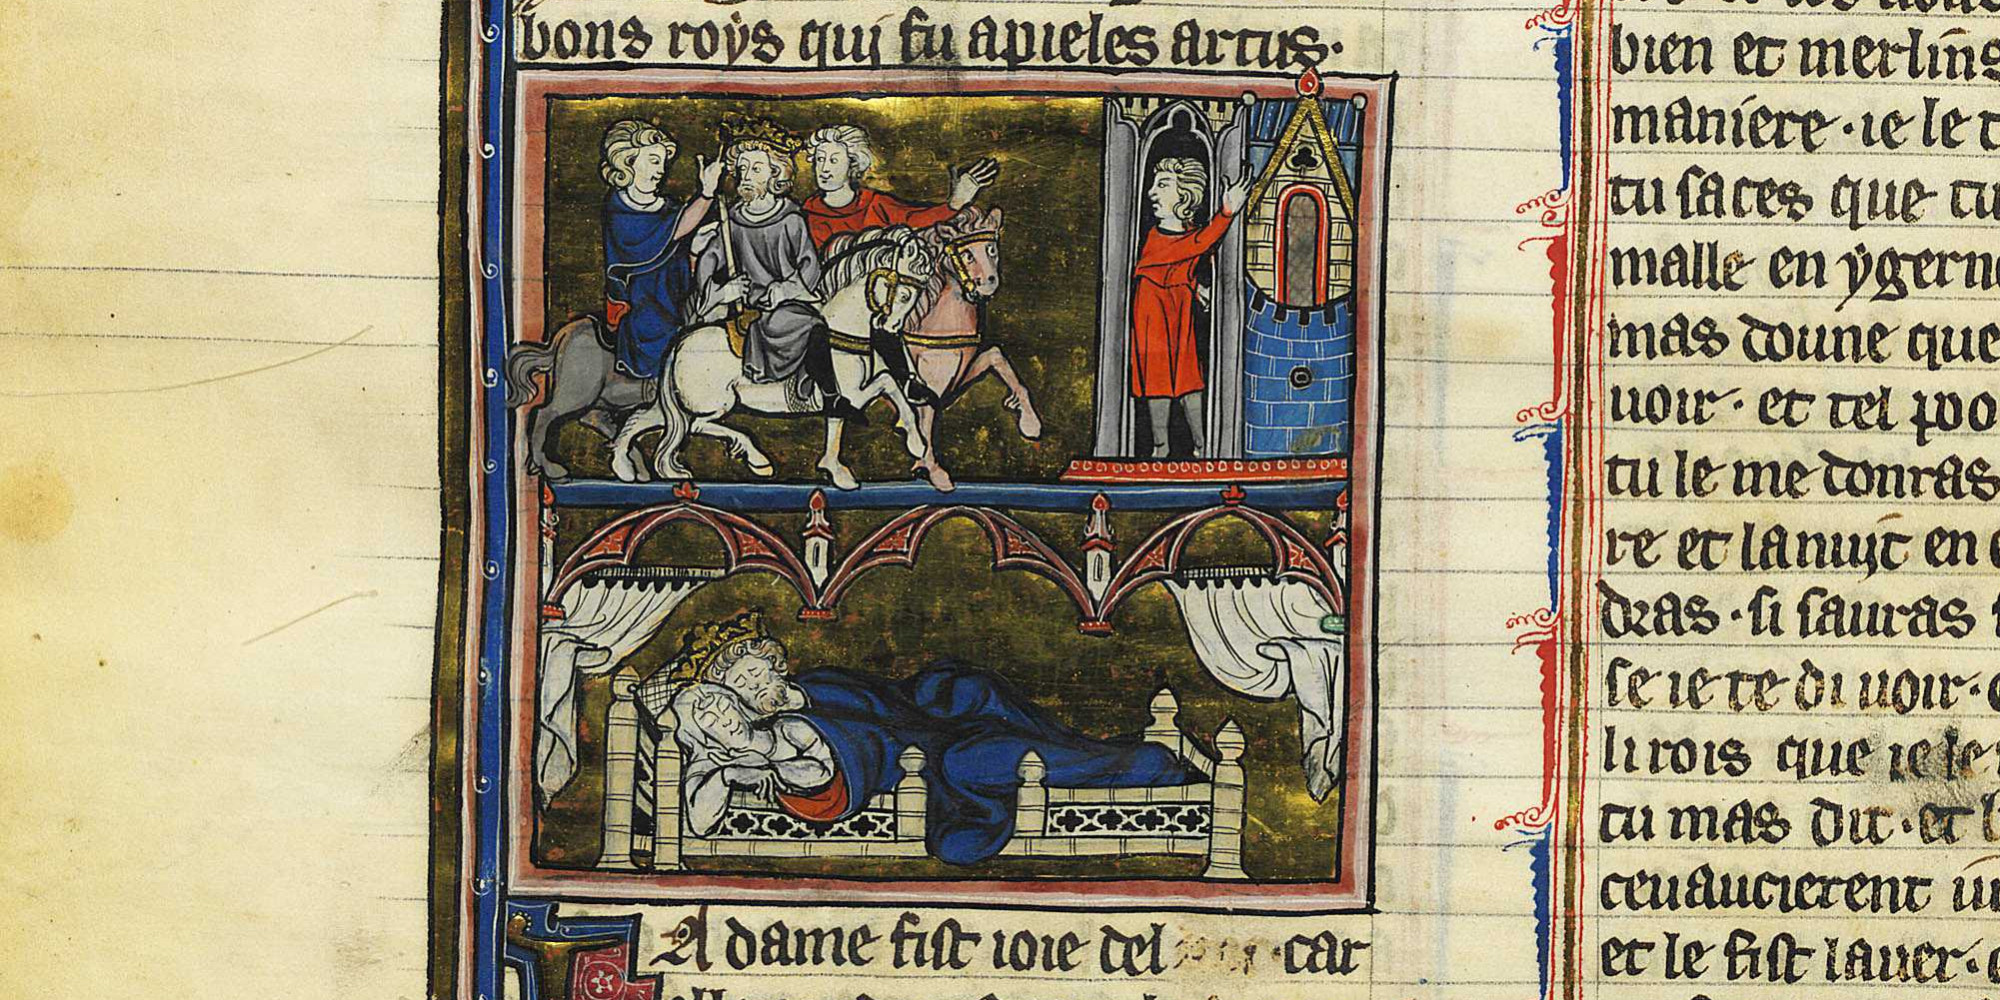 bons roys qui fu apieles artus.
A dame fist ioie del car
bien et merlins
maniere . ie le
tu saces que tu
malle en ygerne
mas doune que
uoir . et tel poo
tu le me donras
re et la nuit en
dras . si sauras
se ie te di uoir .
li rois que ie le
tu mas dit . et
ceuaucierent
et le fist lauer .